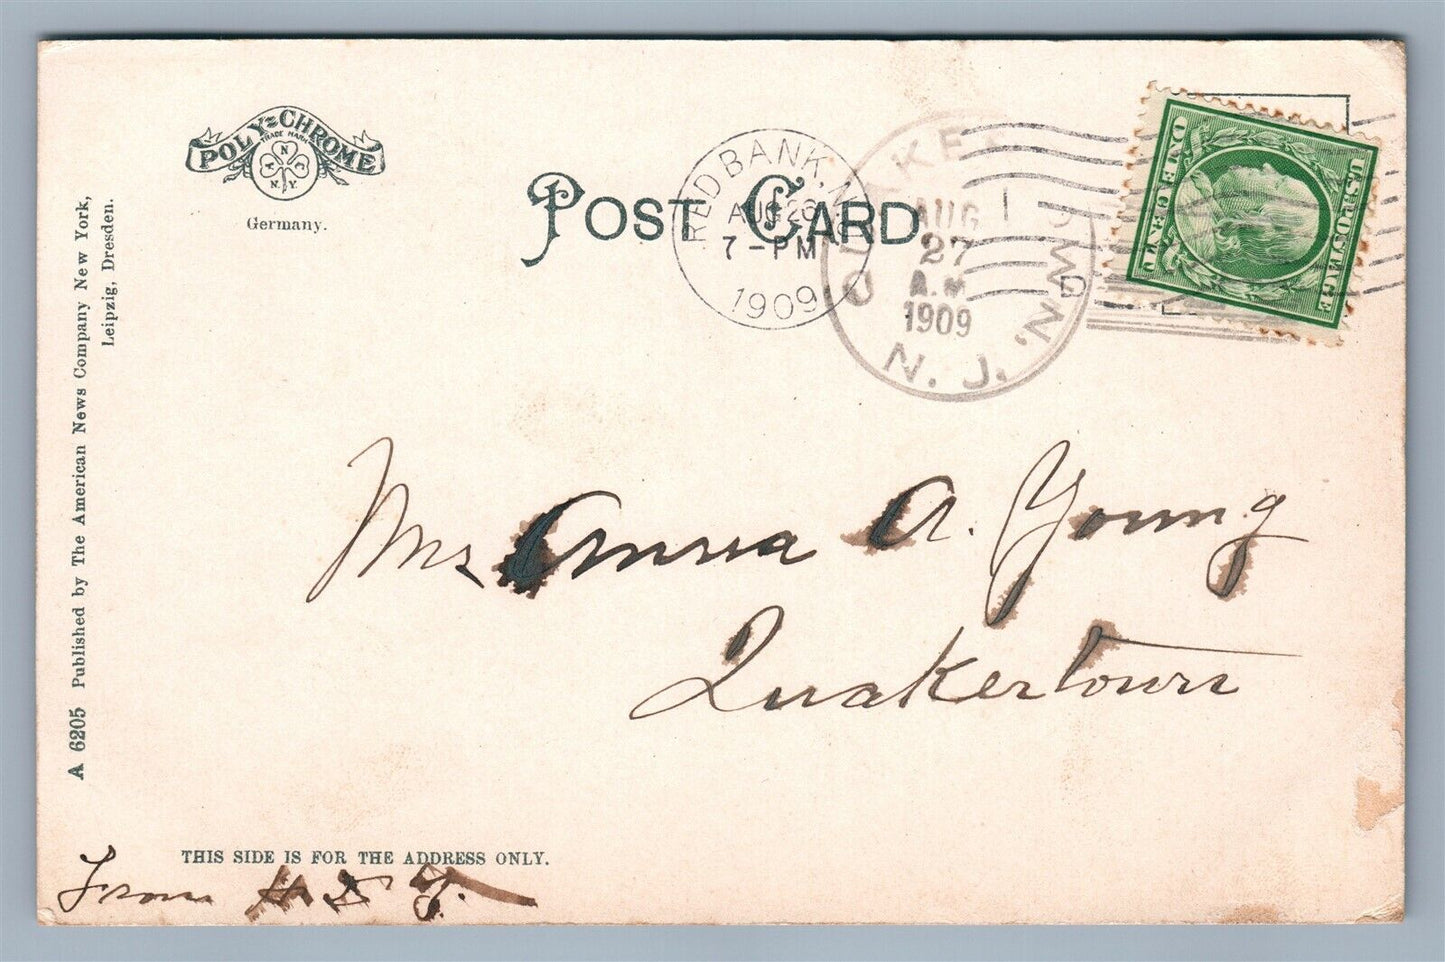 POLY=CHROME
TRADE MARK
A N C
N.Y.
Germany.
POST CARD
RED BANK, N.J.
AUG 26
7-PM
1909
QUAKERTOWN, N.J.
AUG
27
A.M
1909
U.S. POSTAGE
ONE CENT
Mrs Anna A. Young
Quakertown
A 6205 Published by The American News Company New York,
Leipzig, Dresden.
THIS SIDE IS FOR THE ADDRESS ONLY.
From H D Y.